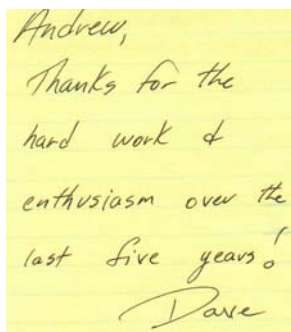 Andrew,
Thanks for the
hard work &
enthusiasm over the
last five years!
Dave